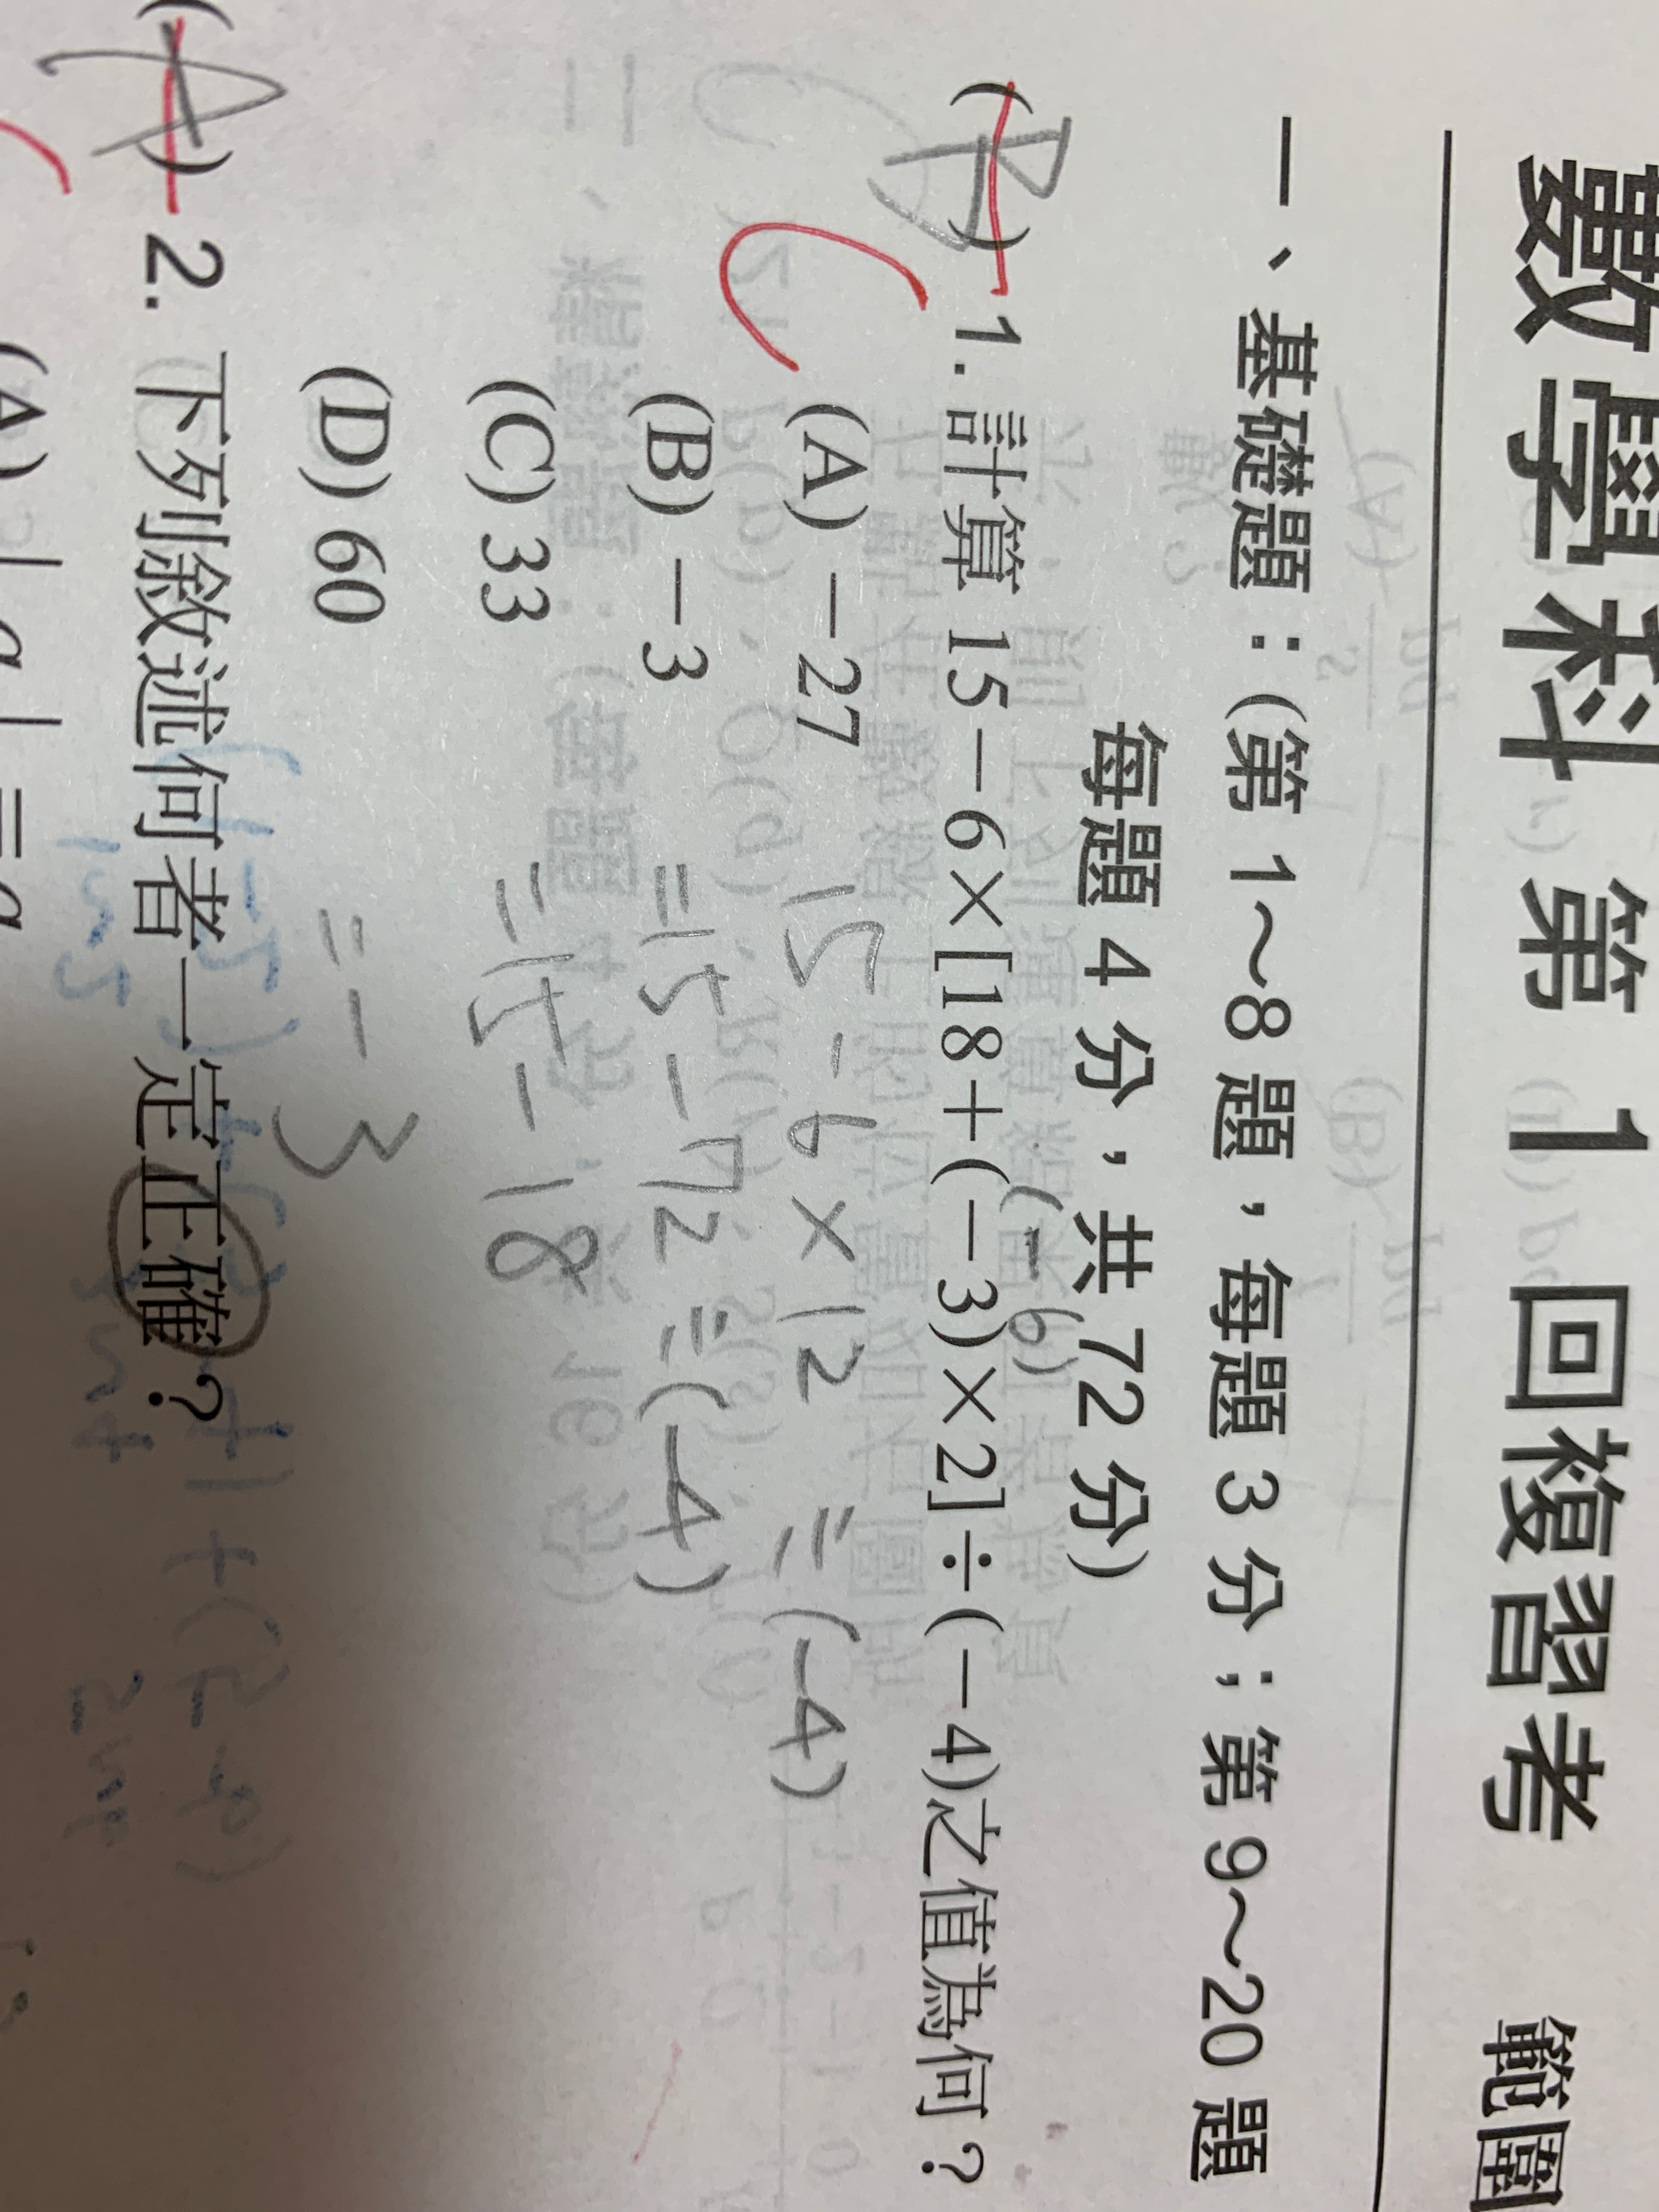 數學科 第 1 回複習考 範圍
一、基礎題：(第 1～8 題，每題 3 分；第 9～20 題
每題 4 分，共 72 分)
(B) 1. 計算 15－6×[18＋(－3)×2]÷(－4)之值為何？
(-6)
C
(A) －27
(B) －3
(C) 33
(D) 60
15 - 6 × 12 ÷ (-4)
= 15 - 72 ÷ (-4)
= 15 - 18
= - 3
(A) 2. 下列敘述何者一定正確？
(A)